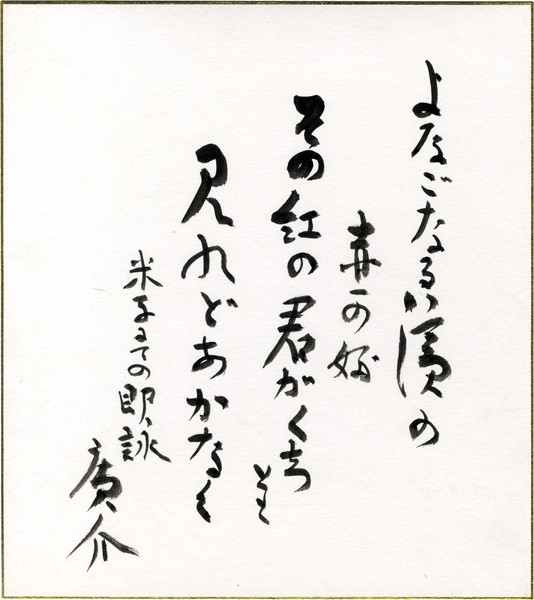 よなごなる濱の
その紅の君がくち
もと
見れどあかなく
米子にての即詠
廣介